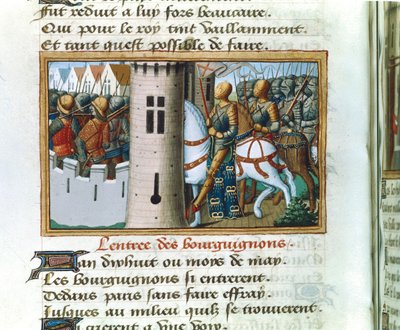 fut reduit a luy fors beaucaire.
Qui pour le roy tint vaillamment.
Et tant quest possible de faire.
Lentree des bourguignons.
Lan dixhuit ou mors de may.
Les bourguignons si entrerent.
Dedans paris sans faire effray
Jusques au milieu quilz se trouverent.
a vne voix